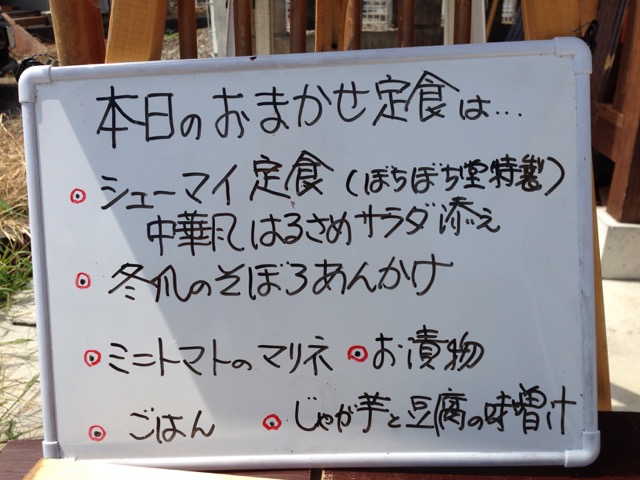 本日のおまかせ定食は…
シューマイ定食(ぼちぼち堂特製)
中華風はるさめサラダ添え
冬瓜のそぼろあんかけ
ミニトマトのマリネ お漬物
ごはん じゃが芋と豆腐の味噌汁